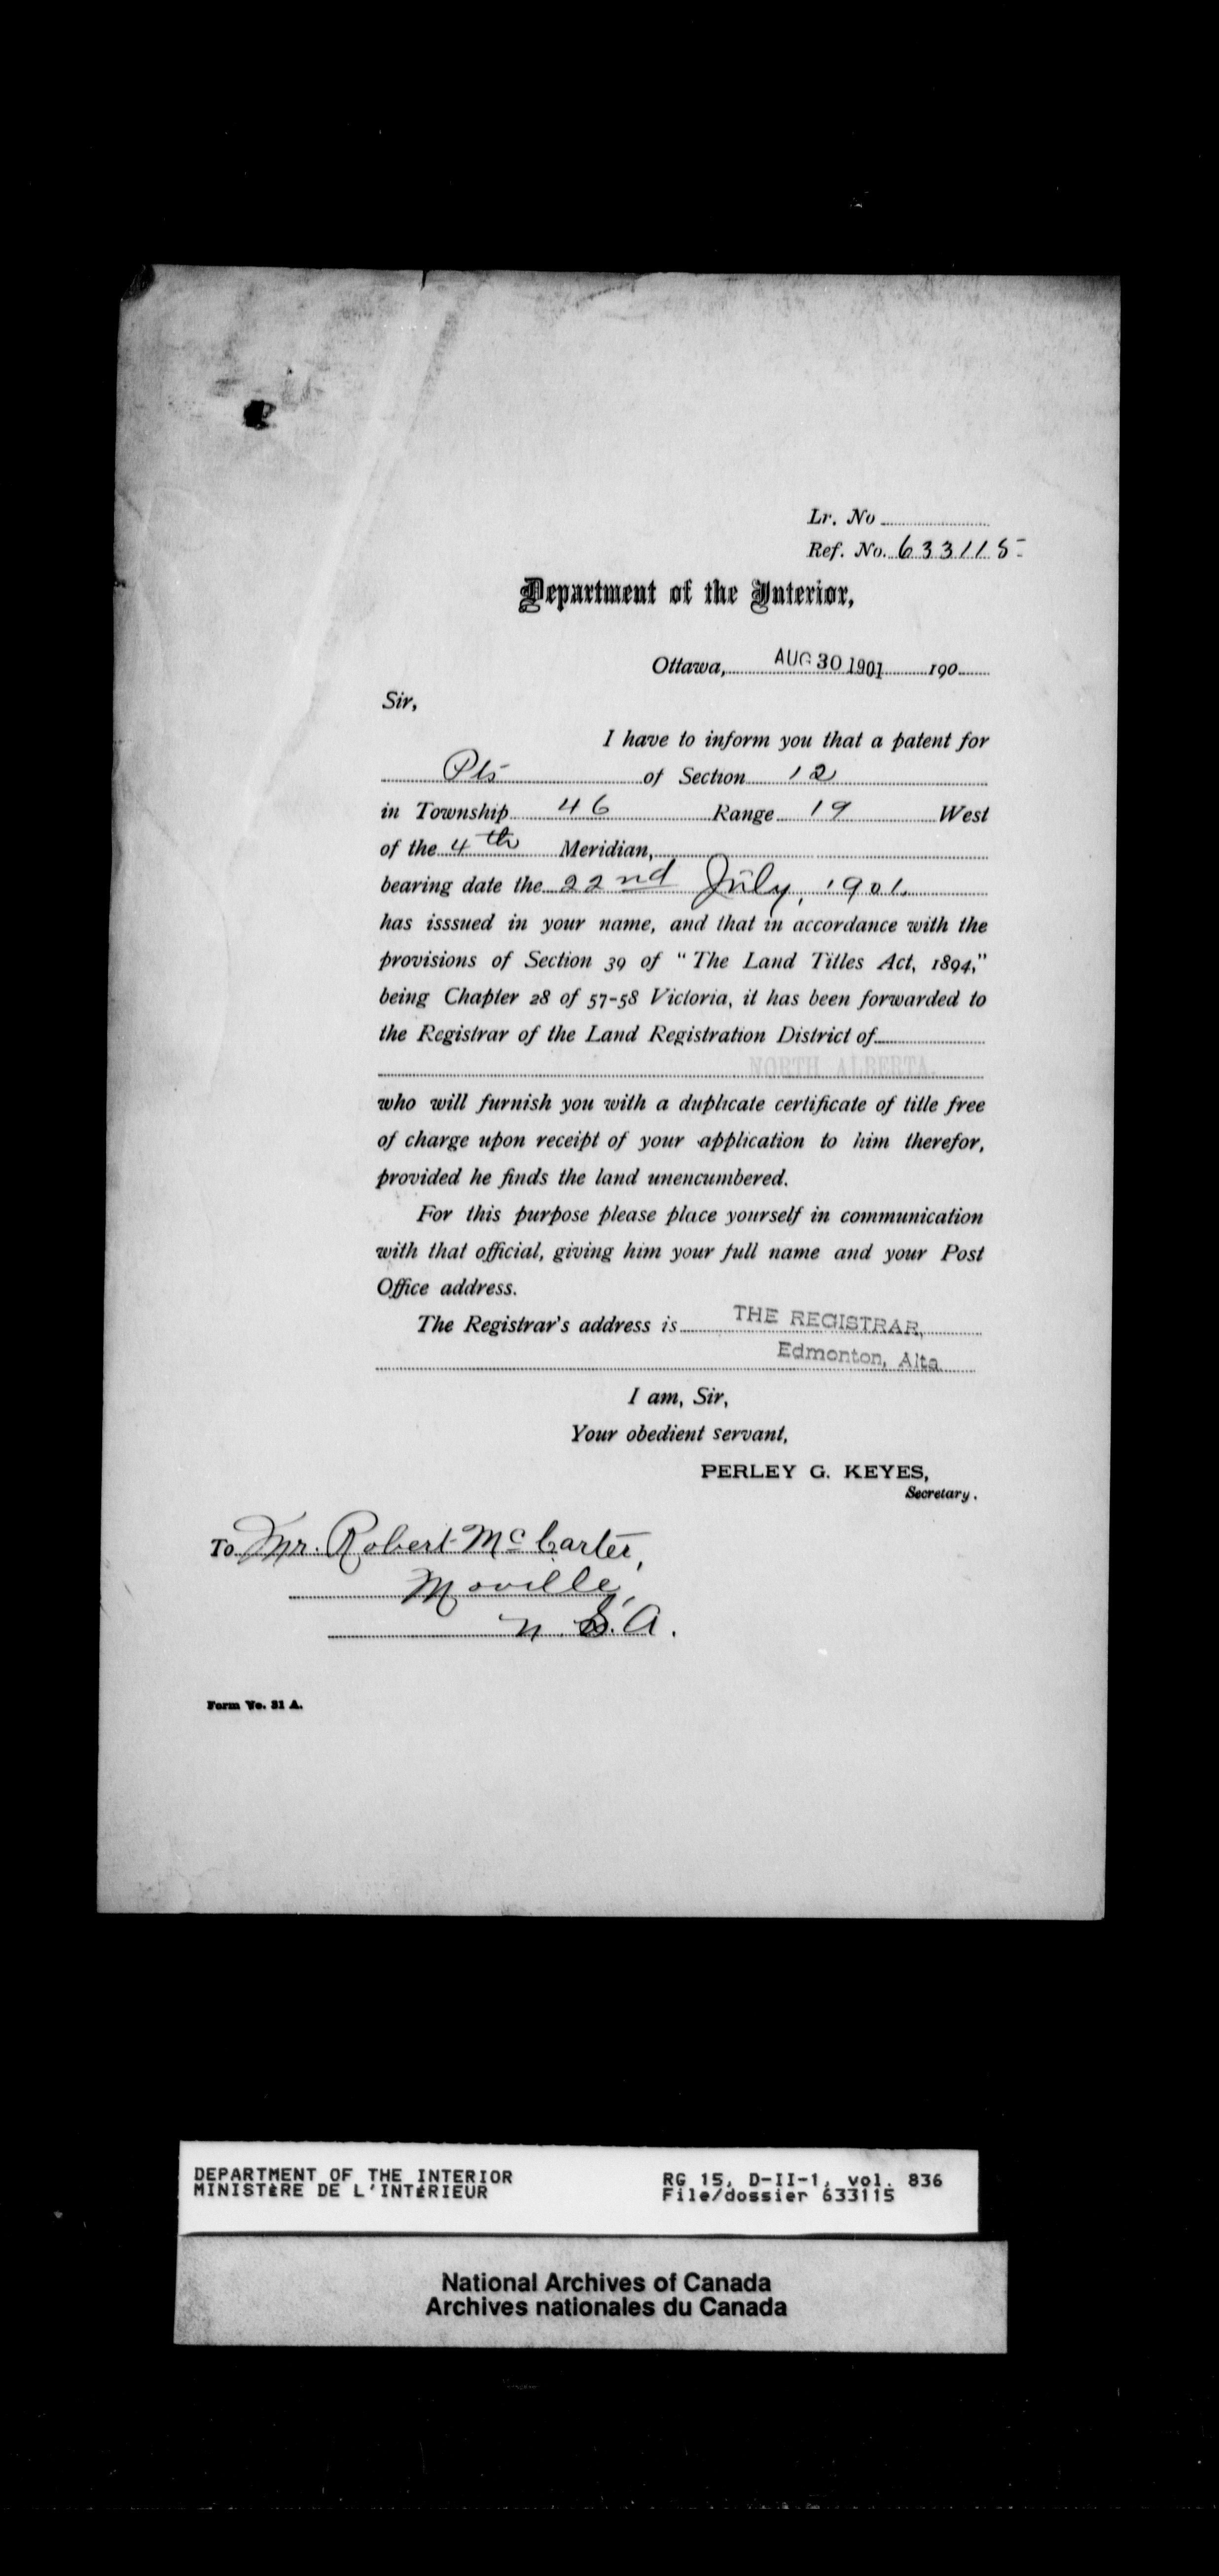 Lr. No
Ref. No. 633115
Department of the Interior,
Ottawa, AUG 30 1901 190
Sir,
I have to inform you that a patent for
Pts of Section 12
in Township 46 Range 19 West
of the 4th Meridian,
bearing date the 22nd July, 1901.
has isssued in your name, and that in accordance with the
provisions of Section 39 of "The Land Titles Act, 1894,"
being Chapter 28 of 57-58 Victoria, it has been forwarded to
the Registrar of the Land Registration District of
NORTH ALBERTA.
who will furnish you with a duplicate certificate of title free
of charge upon receipt of your application to him therefor,
provided he finds the land unencumbered.
For this purpose please place yourself in communication
with that official, giving him your full name and your Post
Office address.
The Registrar's address is THE REGISTRAR,
Edmonton, Alta.
I am, Sir,
Your obedient servant,
PERLEY G. KEYES,
Secretary.
To Mr. Robert McCarter,
Moville,
N. S. A.
Form No. 31 A.
DEPARTMENT OF THE INTERIOR RG 15, D-II-1, vol. 836
MINISTÈRE DE L'INTÉRIEUR File/dossier 633115
National Archives of Canada
Archives nationales du Canada